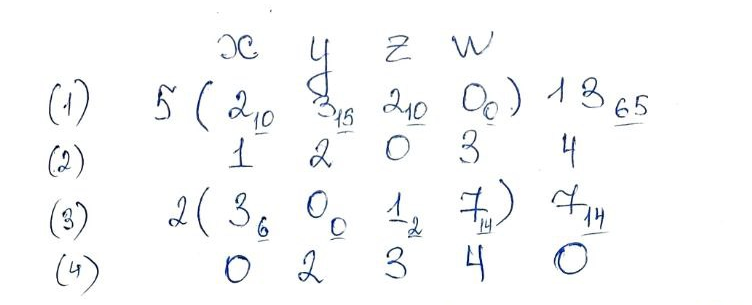 x y z w
(1) 5 ( 2 10 3 15 2 10 0 0 ) 13 65
(2) 1 2 0 3 4
(3) 2 ( 3 6 0 0 1 2 7 14 ) 7 14
(4) 0 2 3 4 0